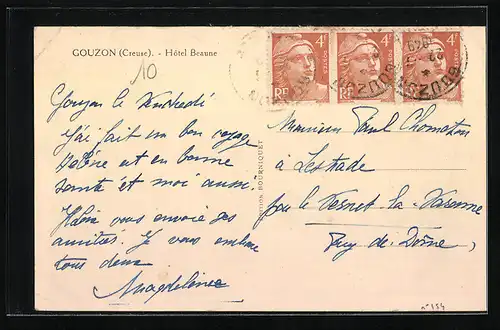 GOUZON (Creuse). - Hôtel Beaune
10
4F 4F 4F
RF RF
POSTES
GOUZON
Gouzon le Vendredi
J'ai fait un bon voyage
Valérie est en bonne
santé et moi aussi.
vous envoie ses
amitiés. Je vous embrasse
tous deux
Magdeleine
EDITION BOURNIQUET
Monsieur Paul Chomaton
à Lestrade
par le Vernet-la-Varenne
Puy-de-Dôme
n°154